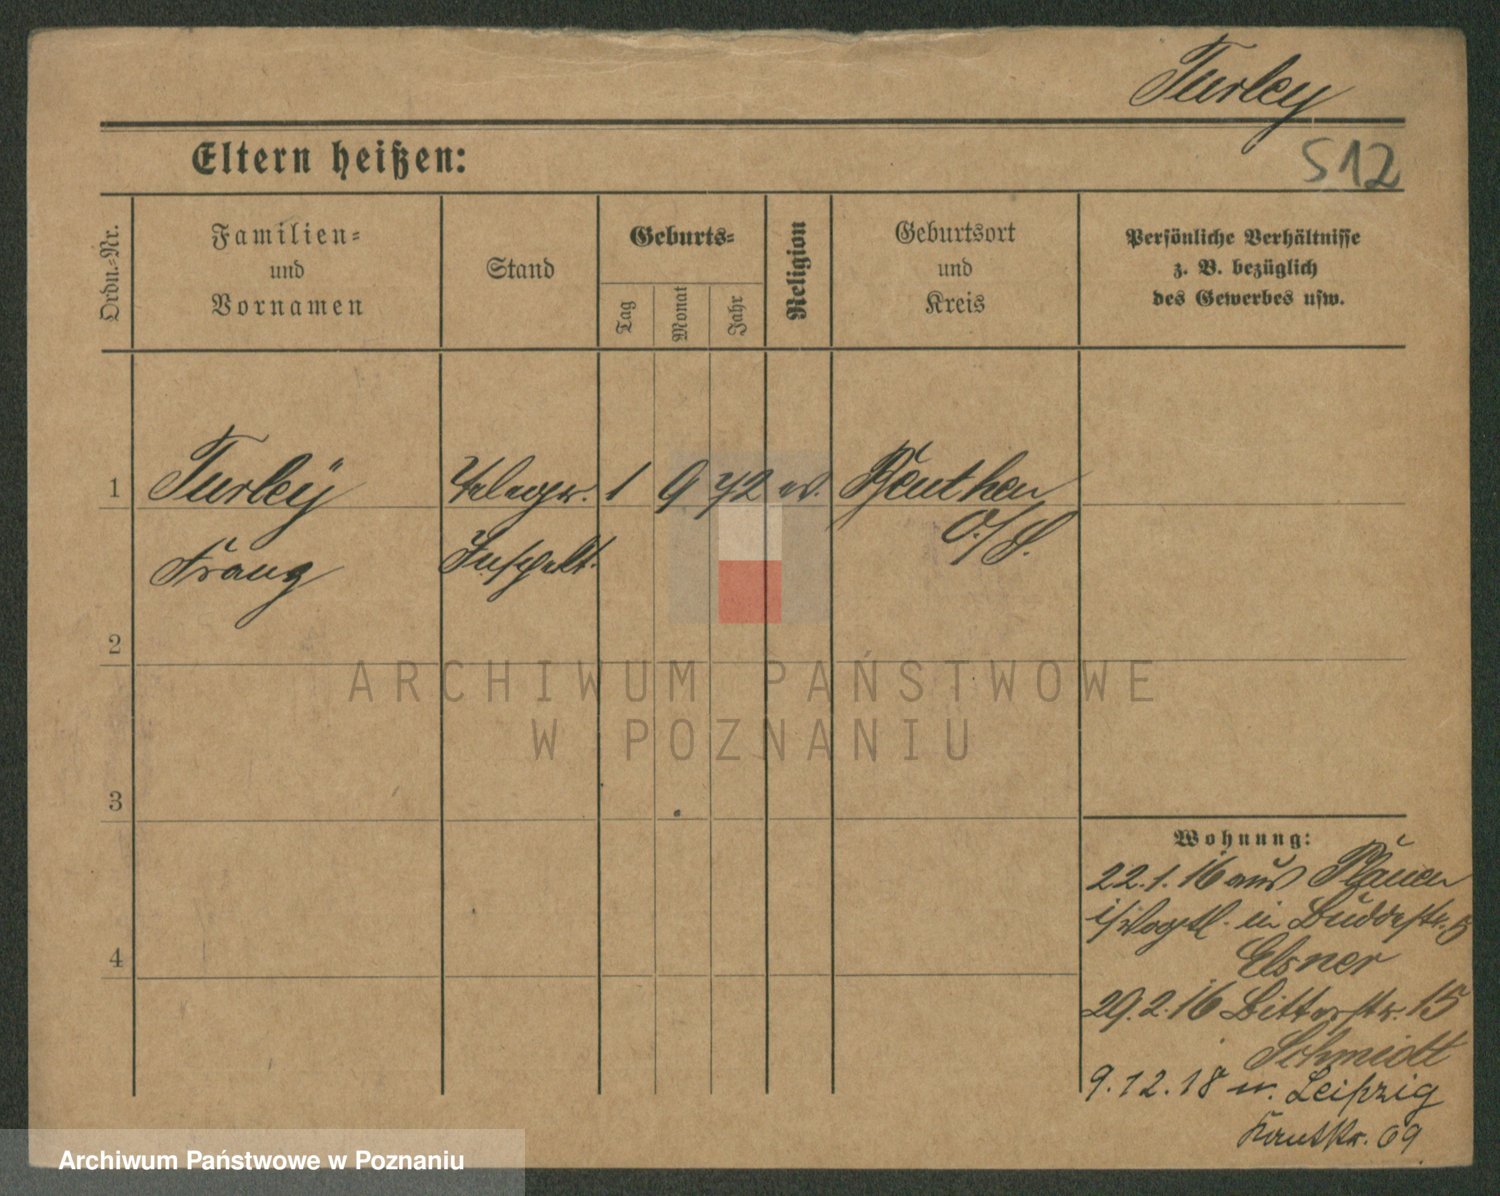 Turley
512
Eltern heißen:
Ordn.-Nr.
Familien-
und
Vornamen
Stand
Geburts-
Tag
Monat
Jahr
Religion
Geburtsort
und
Kreis
Persönliche Verhältnisse
z. B. bezüglich
des Gewerbes usw.
1
Turleÿ
Telegr.
1
9
72
ev.
Beuthen
O./S.
Franz
Inspekt.
2
3
4
Wohnung:
22.1.16 aus Plauen
i/Vogtl. in Buddestr. 5
Elsner
29.2.16 Bitterstr. 15
Schmidt
9.12.18 n. Leipzig
69
ARCHIWUM PAŃSTWOWE
W POZNANIU
Archiwum Państwowe w Poznaniu